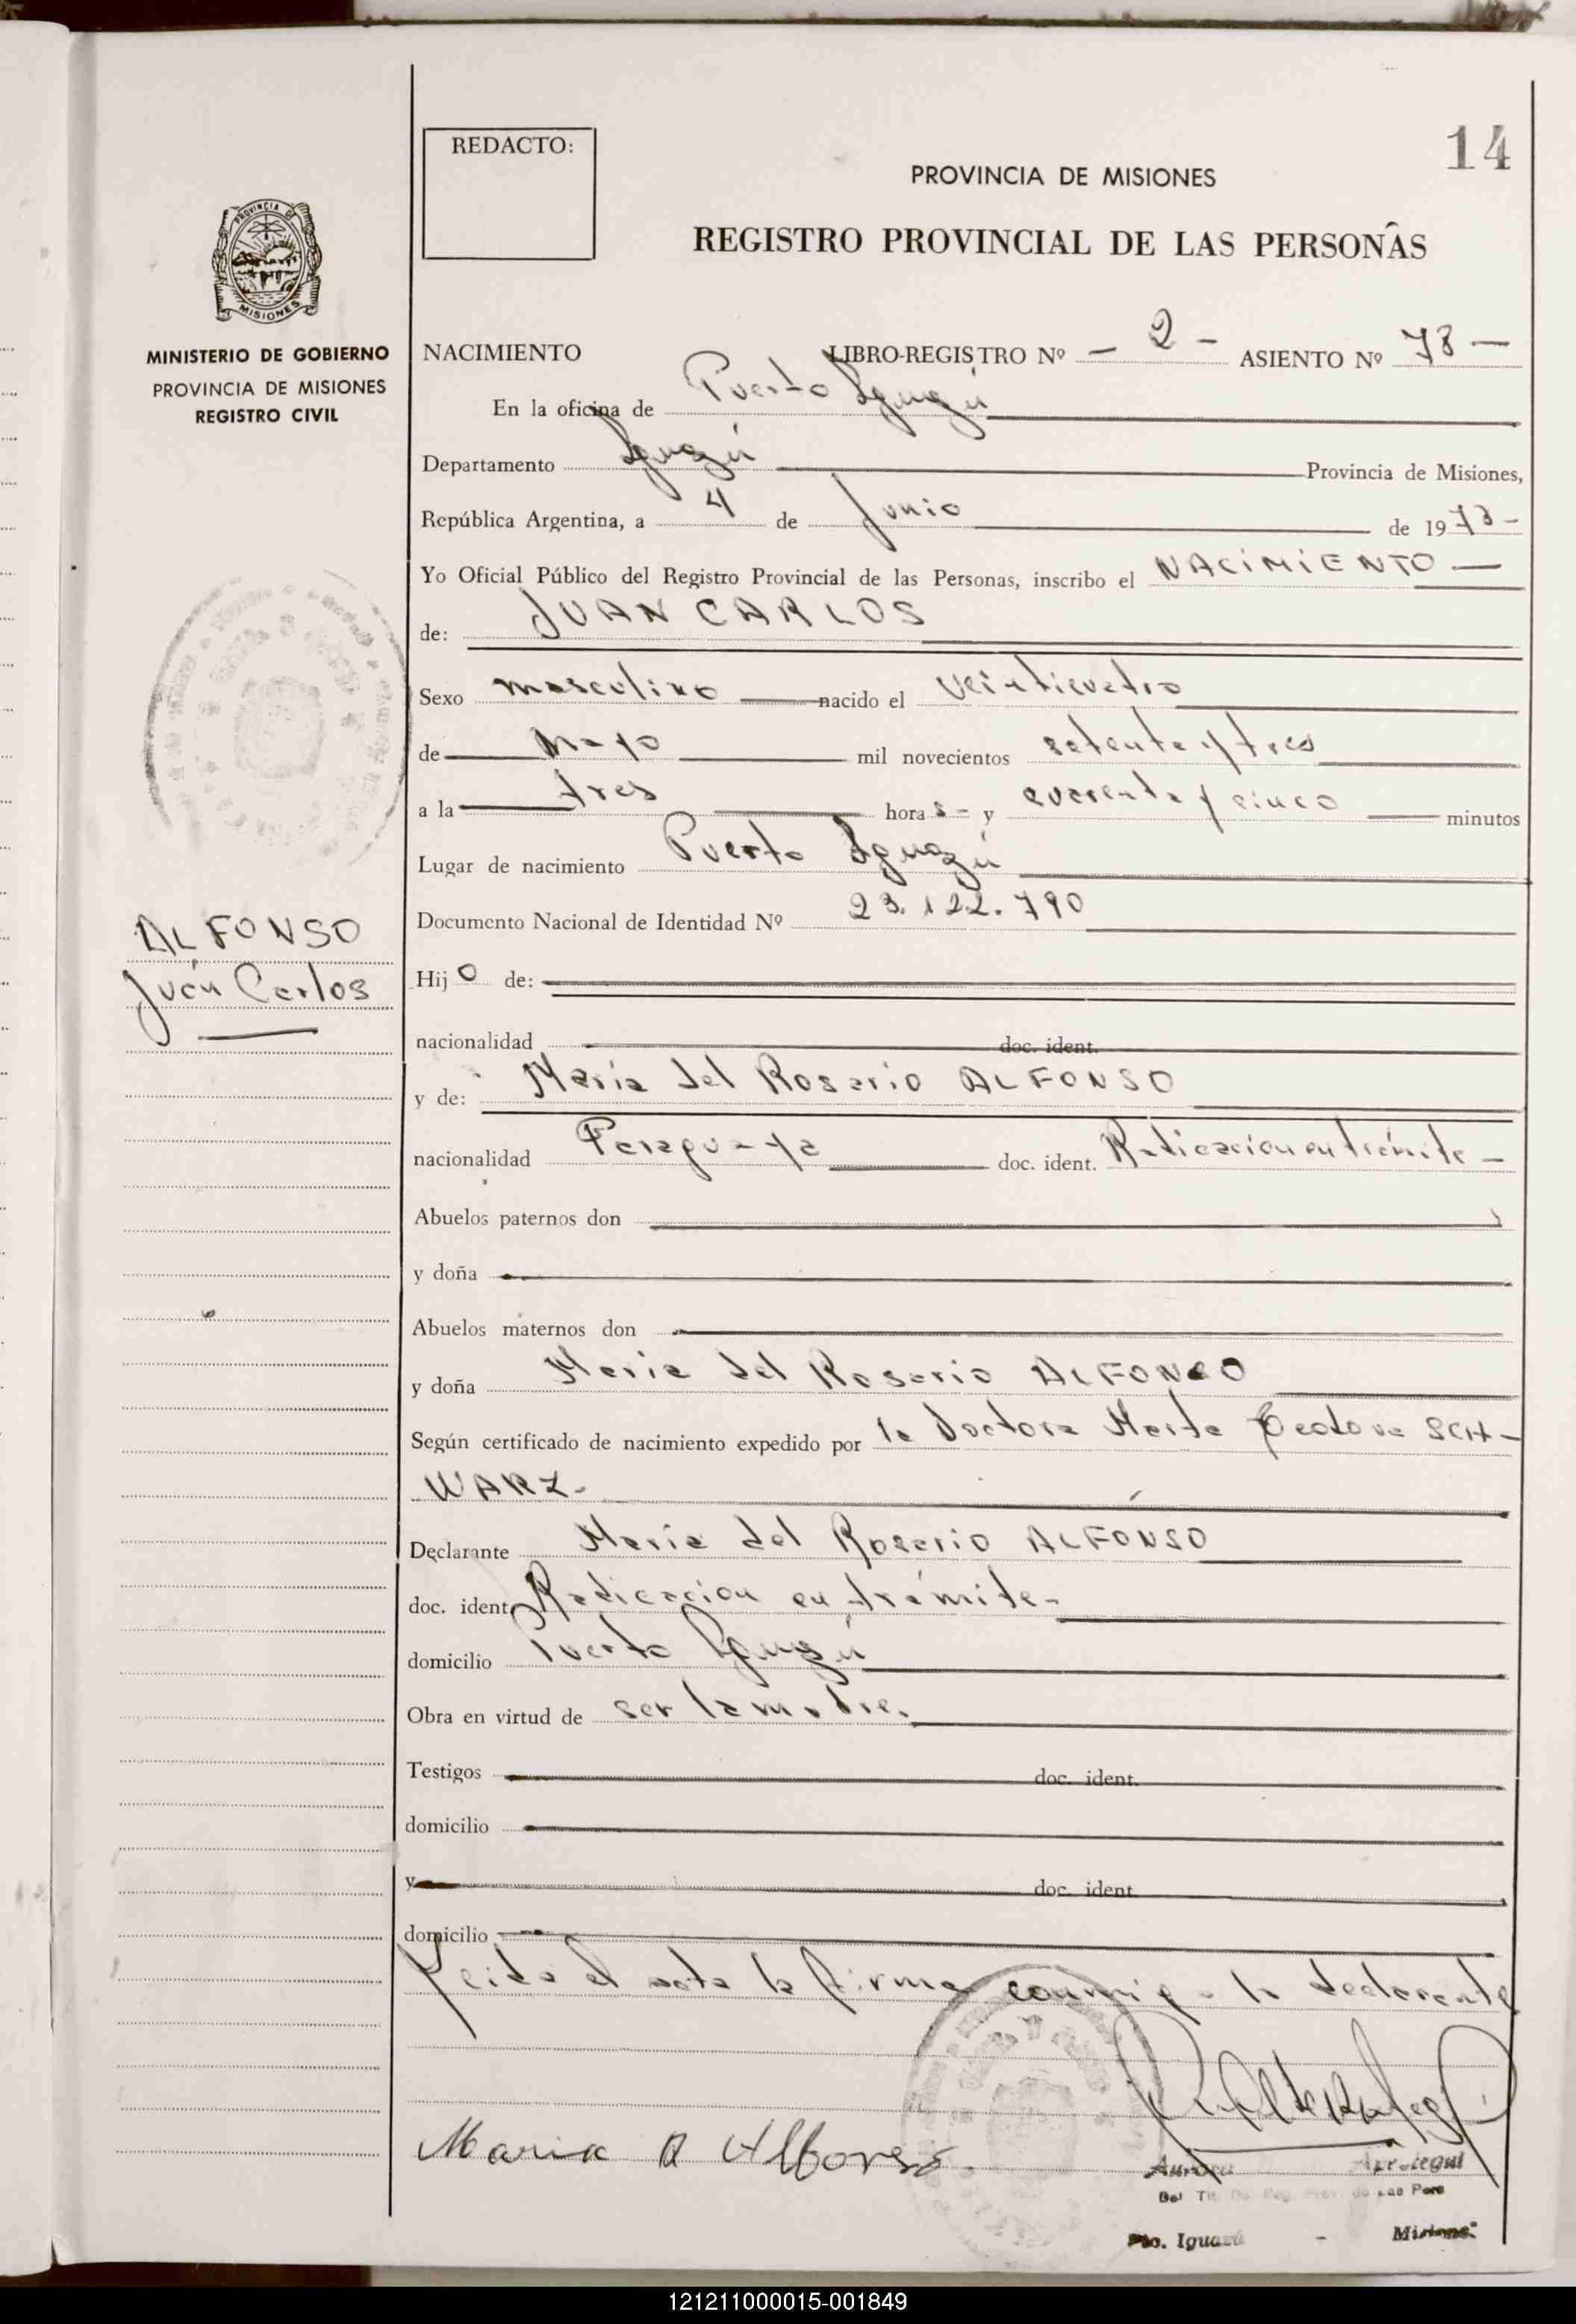 14
REDACTO:
PROVINCIA DE MISIONES
REGISTRO PROVINCIAL DE LAS PERSONAS
PROVINCIA DE
MISIONES
MINISTERIO DE GOBIERNO
PROVINCIA DE MISIONES
REGISTRO CIVIL
NACIMIENTO LIBRO-REGISTRO Nº - 2 - ASIENTO Nº 78 -
En la oficina de Puerto Iguazú
Departamento Iguazú Provincia de Misiones,
República Argentina, a 4 de Junio de 1973-
Yo Oficial Público del Registro Provincial de las Personas, inscribo el NACIMIENTO -
de: JUAN CARLOS
Sexo masculino nacido el veinticuatro
de Mayo mil novecientos setenta y tres
a la tres horas- y cuarenta y cinco minutos
Lugar de nacimiento Puerto Iguazú
Documento Nacional de Identidad Nº 23.122.790
ALFONSO
Juan Carlos
Hijo de:
nacionalidad doc. ident.
y de: María del Rosario ALFONSO
nacionalidad Paraguaya doc. ident. Radicación en trámite -
Abuelos paternos don
y doña
Abuelos maternos don
y doña María del Rosario ALFONSO
Según certificado de nacimiento expedido por la Doctora Marta SCH-
WARZ.
Declarante María del Rosario ALFONSO
doc. ident. Radicación en trámite-
domicilio Puerto Iguazú
Obra en virtud de ser la madre.
Testigos doc. ident.
domicilio
y doc. ident.
domicilio
Leida el acta la firma conmigo la declarante
Maria R Alfonso.
Pto. Iguazú - Misiones
121211000015-001849